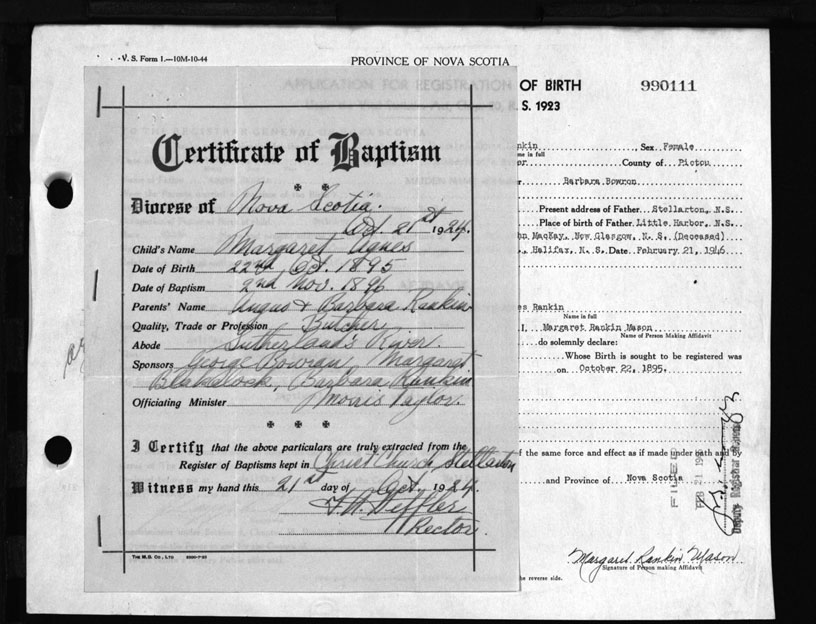 V. S. Form 1.—10M-10-44
PROVINCE OF NOVA SCOTIA
APPLICATION FOR REGISTRATION OF BIRTH
990111
S. 1923
Certificate of Baptism
Diocese of Nova Scotia.
Oct. 21st 1924.
Child's Name Margaret Agnes
Date of Birth 22nd Oct. 1895
Date of Baptism 2nd Nov. 1896
Parents' Name Angus & Barbara Rankin
Quality, Trade or Profession Butcher
Abode Sutherland's River.
Sponsors George Bowran, Margaret
Blakelock, Barbara Rankin
Officiating Minister Morris Taylor.
I Certify that the above particulars are truly extracted from the
Register of Baptisms kept in Christ Church Stellarton
Witness my hand this 21st day of Oct. 1924.
Rector.
THE M. B. CO., LTD
nkin, Sex Female
me in full
or County of Pictou
Barbara Bowron
Present address of Father Stellarton, N.S.
Place of birth of Father Little Harbor, N.S.
hn MacKay, New Glasgow, N. S. (Deceased)
., Halifax, N. S. Date February 21, 1946
es Rankin
Name in full
I, Margaret Rankin Mason
Name of Person Making Affidavit
do solemnly declare:
Whose Birth is sought to be registered was
on October 22, 1895.
f the same force and effect as if made under oath and by
and Province of Nova Scotia
FILED
FEB 21 19
Deputy Registrar General
Margaret Rankin Mason
Signature of Person making Affidavit
he reverse side.